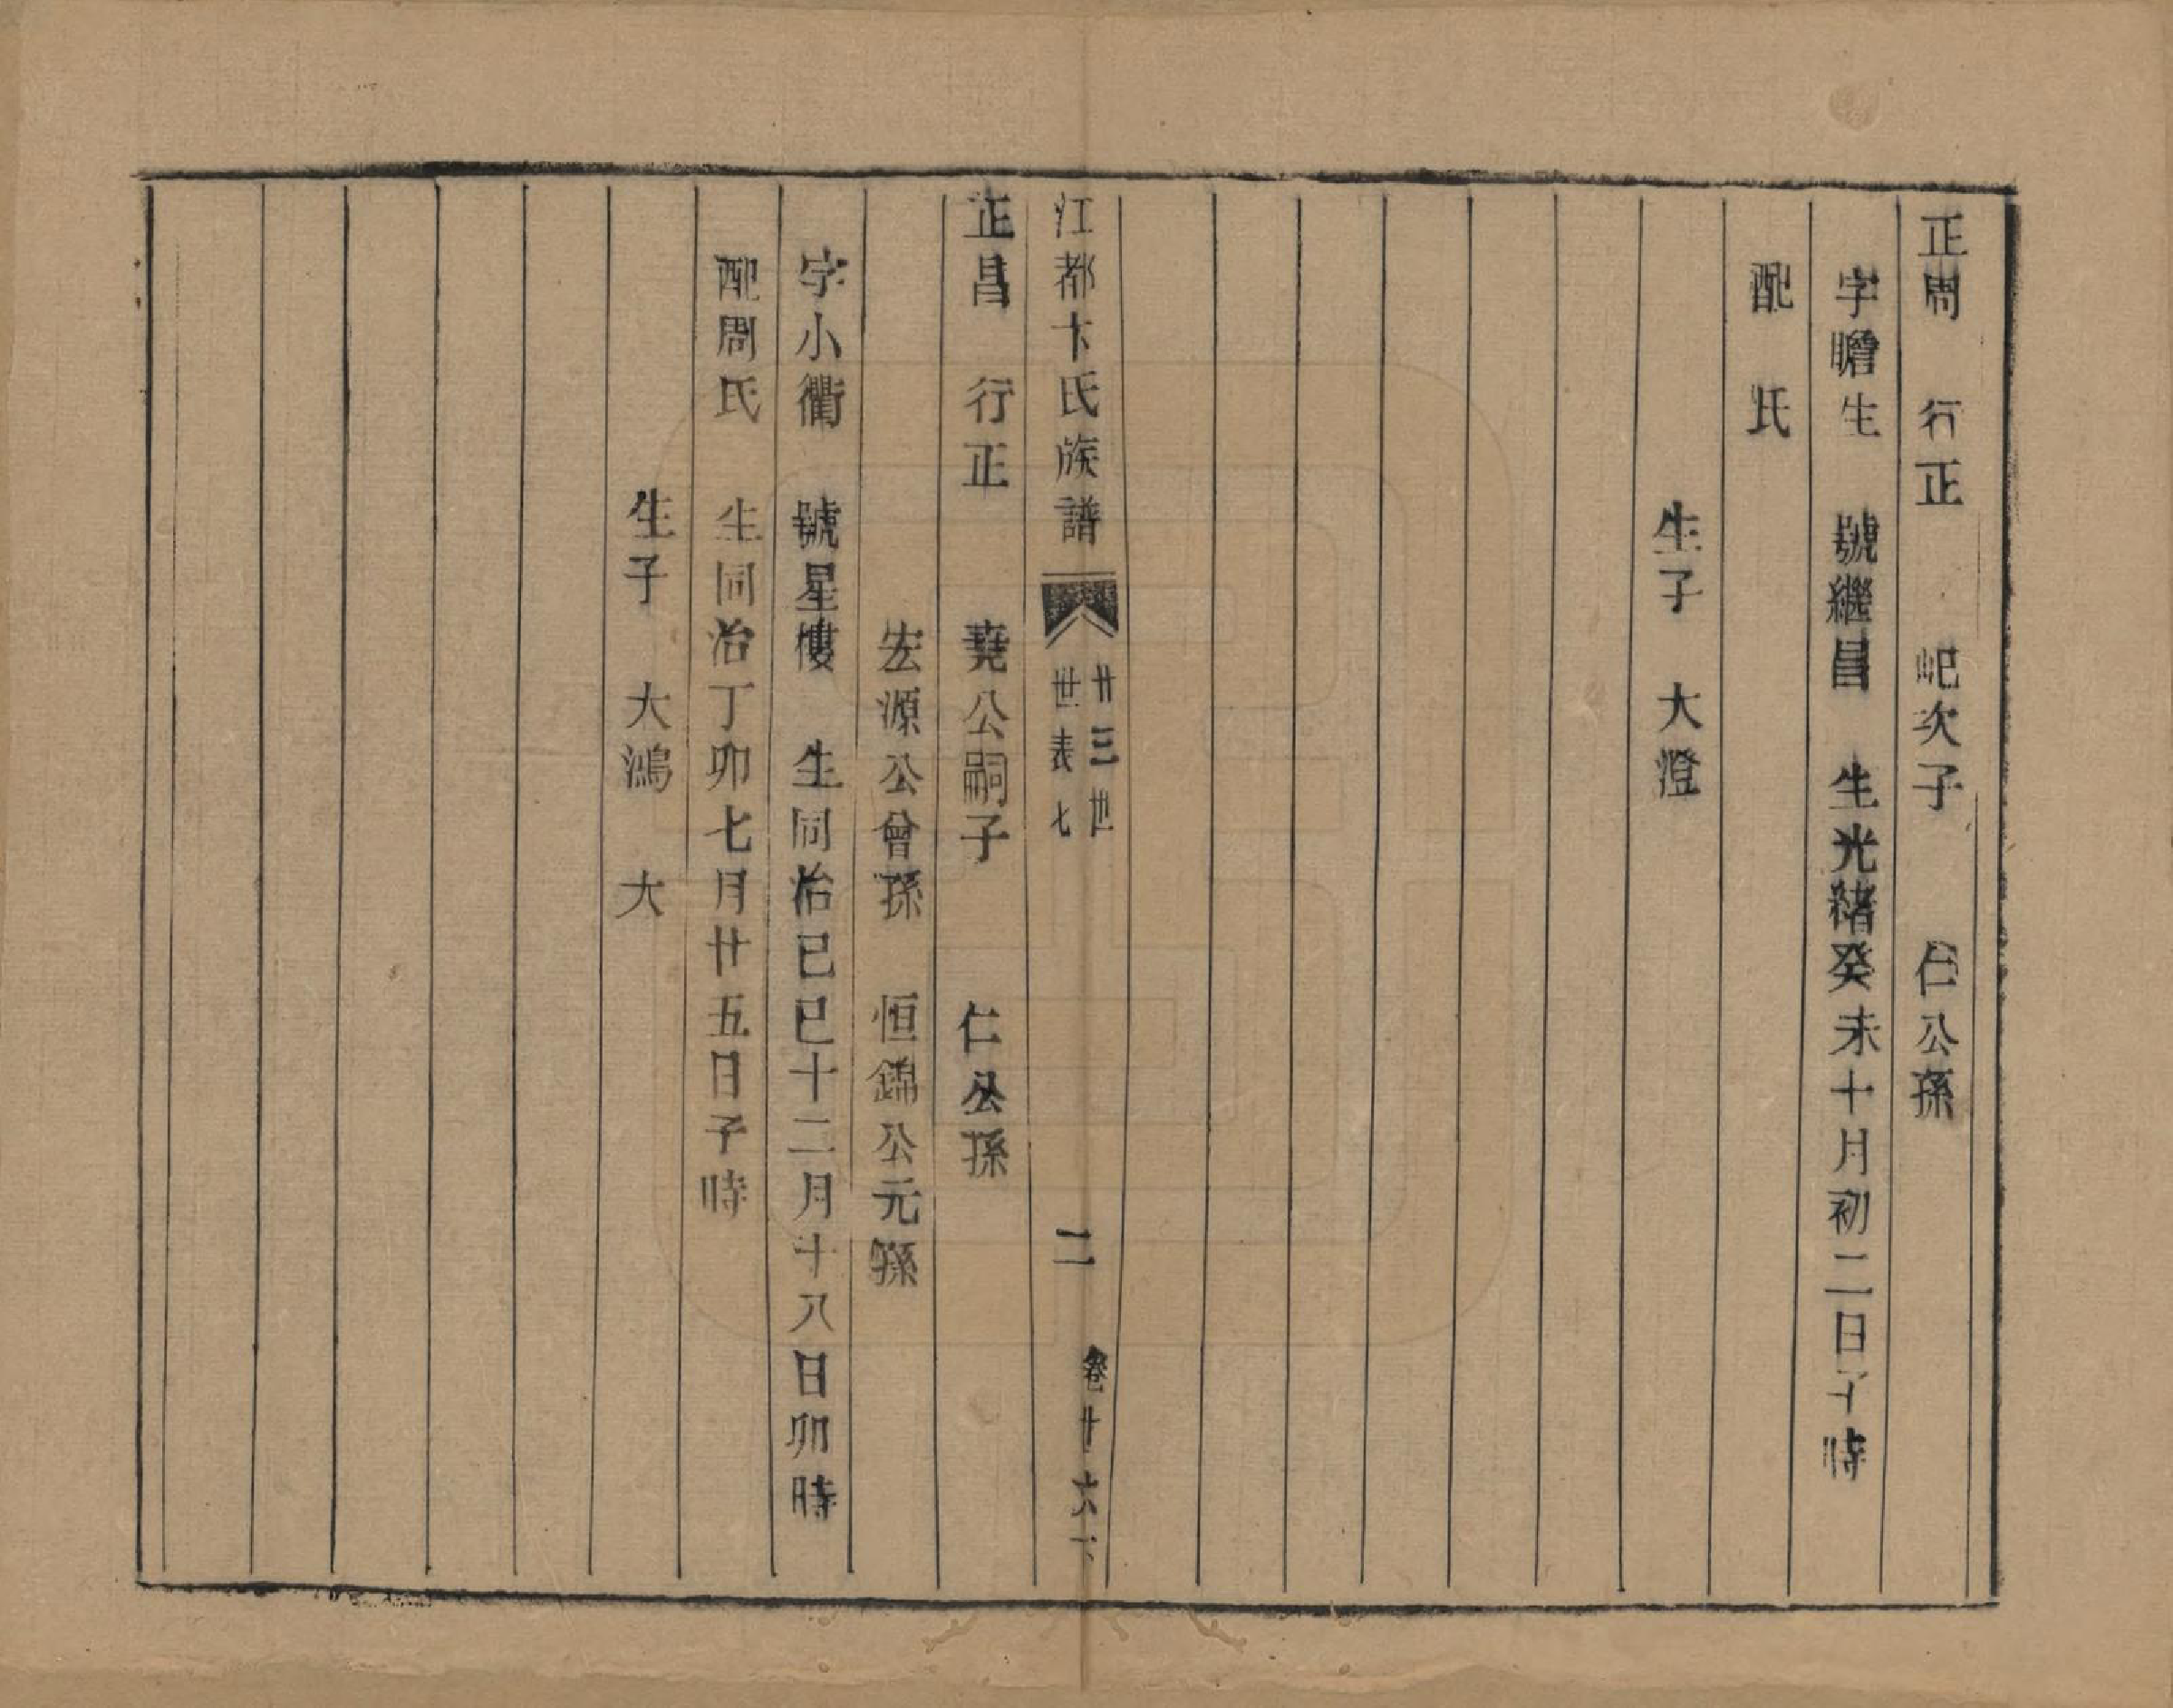 正周　行正　　屺次子　　仁公孫
字瞻生　號繼昌　生光緒癸未十月初二日子時
配　氏
生子　大澄
江都卞氏族譜
廿三世
世表七
二
卷廿六下
正昌　行正　　堯公嗣子　　仁公孫
宏源公曾孫　恒錦公元孫
字小衢　號星樓　生同治己巳十二月十八日卯時
配周氏　生同治丁卯七月廿五日子時
生子　大鴻　大